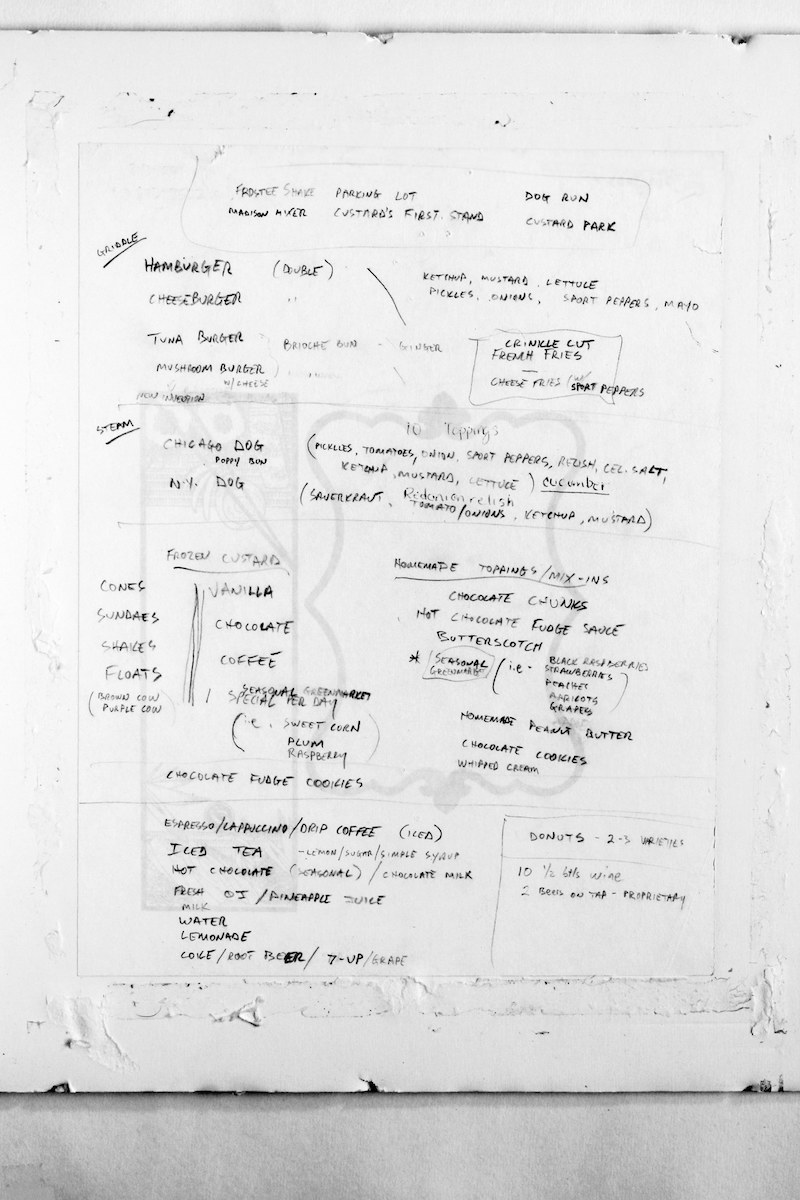 FROSTEE SHAKE PARKING LOT DOG RUN
MADISON MIXER CUSTARD'S FIRST STAND CUSTARD PARK
GRIDDLE
HAMBURGER (DOUBLE)
CHEESEBURGER "
KETCHUP, MUSTARD, LETTUCE
PICKLES, ONIONS, SPORT PEPPERS, MAYO
TUNA BURGER BRIOCHE BUN - GINGER
MUSHROOM BURGER
W/CHEESE
CRINKLE CUT
FRENCH FRIES
CHEESE FRIES (W/ SPORT PEPPERS
STEAM
10 Toppings
CHICAGO DOG (PICKLES, TOMATOES, ONION, SPORT PEPPERS, RELISH, CEL. SALT,
POPPY BUN KETCHUP, MUSTARD, LETTUCE) cucumber
N.Y. DOG (SAUERKRAUT, Red onion relish
TOMATO/ONIONS, KETCHUP, MUSTARD)
FROZEN CUSTARD
CONES VANILLA
SUNDAES CHOCOLATE
SHAKES COFFEE
FLOATS SEASONAL GREENMARKET
(BROWN COW 1 SPECIAL PER DAY
PURPLE COW
(i.e. SWEET CORN
PLUM
RASPBERRY)
CHOCOLATE FUDGE COOKIES
HOMEMADE TOPPINGS/MIX-INS
CHOCOLATE CHUNKS
HOT CHOCOLATE FUDGE SAUCE
BUTTERSCOTCH
* SEASONAL (i.e. BLACK RASPBERRIES
GREENMARK STRAWBERRIES
PEACHES
APRICOTS
GRAPES)
HOMEMADE PEANUT BUTTER
CHOCOLATE COOKIES
WHIPPED CREAM
ESPRESSO/CAPPUCCINO/DRIP COFFEE (ICED)
ICED TEA -LEMON/SUGAR/SIMPLE SYRUP
HOT CHOCOLATE (SEASONAL) / CHOCOLATE MILK
FRESH OJ / PINEAPPLE JUICE
MILK
WATER
LEMONADE
COKE/ROOT BEER/ 7-UP/GRAPE
DONUTS - 2-3 VARIETIES
10 1/2 btls wine
2 BEERS ON TAP - PROPRIETARY